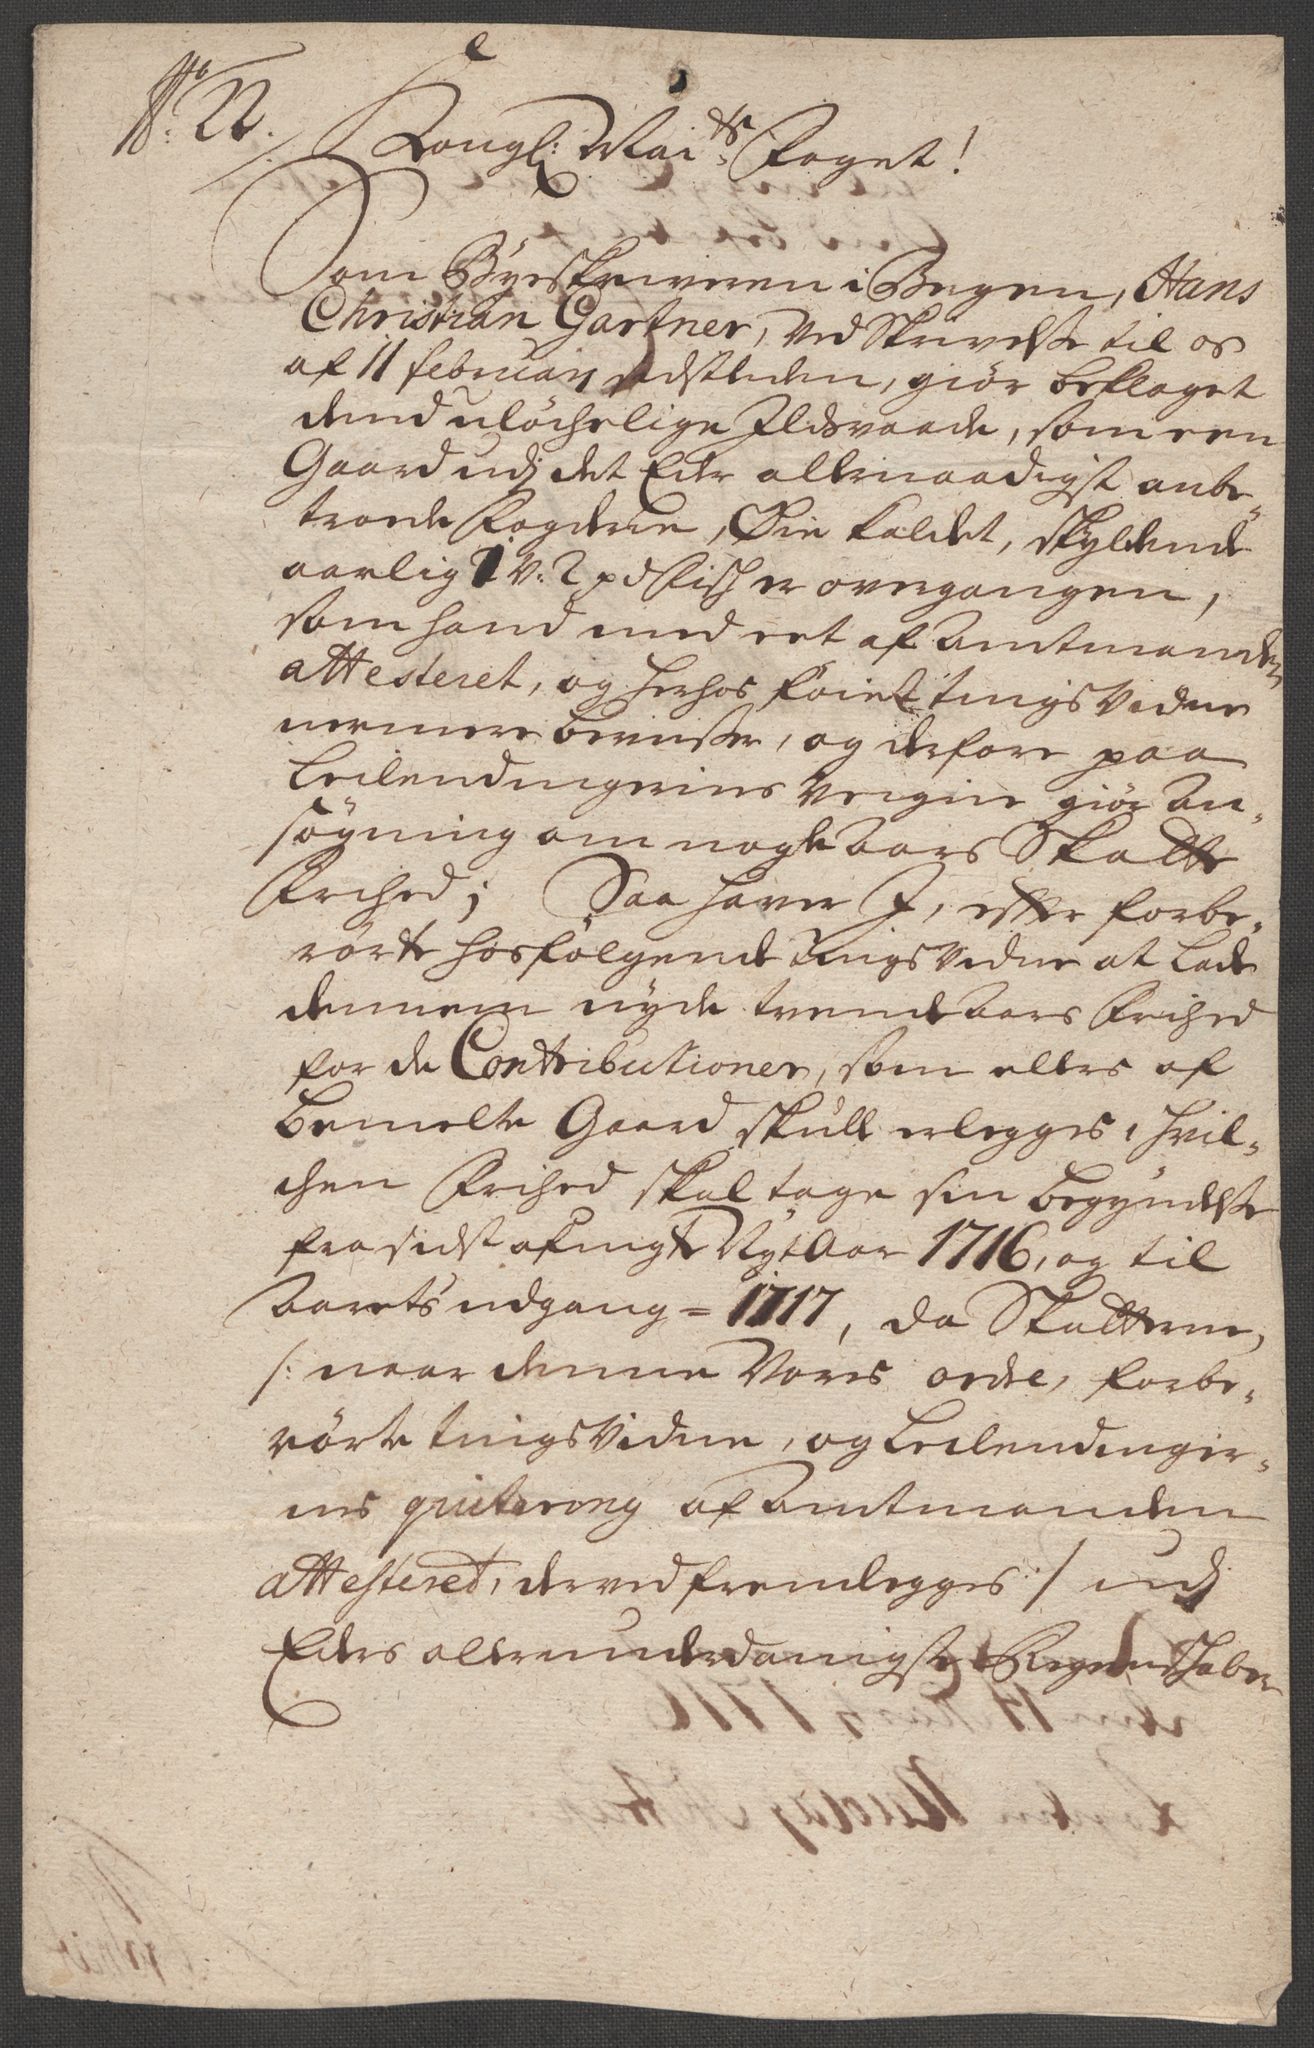 No: 22.
Kongl: Mai:ts Foget!
Som Byeskriveren i Bergen, Hans
Christian Gartner, ved Skrivelse til os
af 11 februarij sidstleden, giör beklaget
dend ulöchelige Ildsvaade, som een
Gaard udj det Eder allernaadigst anbe-
troede Fogderie, Øie kaldet, skyldende
aarlig 1 v: 2 pd fisch er overgangen,
som hand med eet af Amtmanden
attesteret, og herhos föiet tingsVidne
nermere beviser, og derfore paa
Leilendingernes Vegne giör An-
søgning om nogle Aars Skatte
Frihed; Saa haver I, efter forbe-
rörte hosfölgende TingsVidne at lade
dennem nyde trende Aars Frihed
for de Contributioner, som ellers af
bemelte Gaard skulle erlegges, hvil-
chen Frihed skal tage sin begyndelse
fra sidst afvigte Nyt Aar 1716, og til
Aarets udgang = 1717, da Skatterne,
/: naar denne Vores ordre, forbe-
rörte tingsVidne, og Leilendinger-
nes quitering af Amtmanden
attesteret, derved fremlegges :/ udj
Eders allerunderdanigste Regenschaber